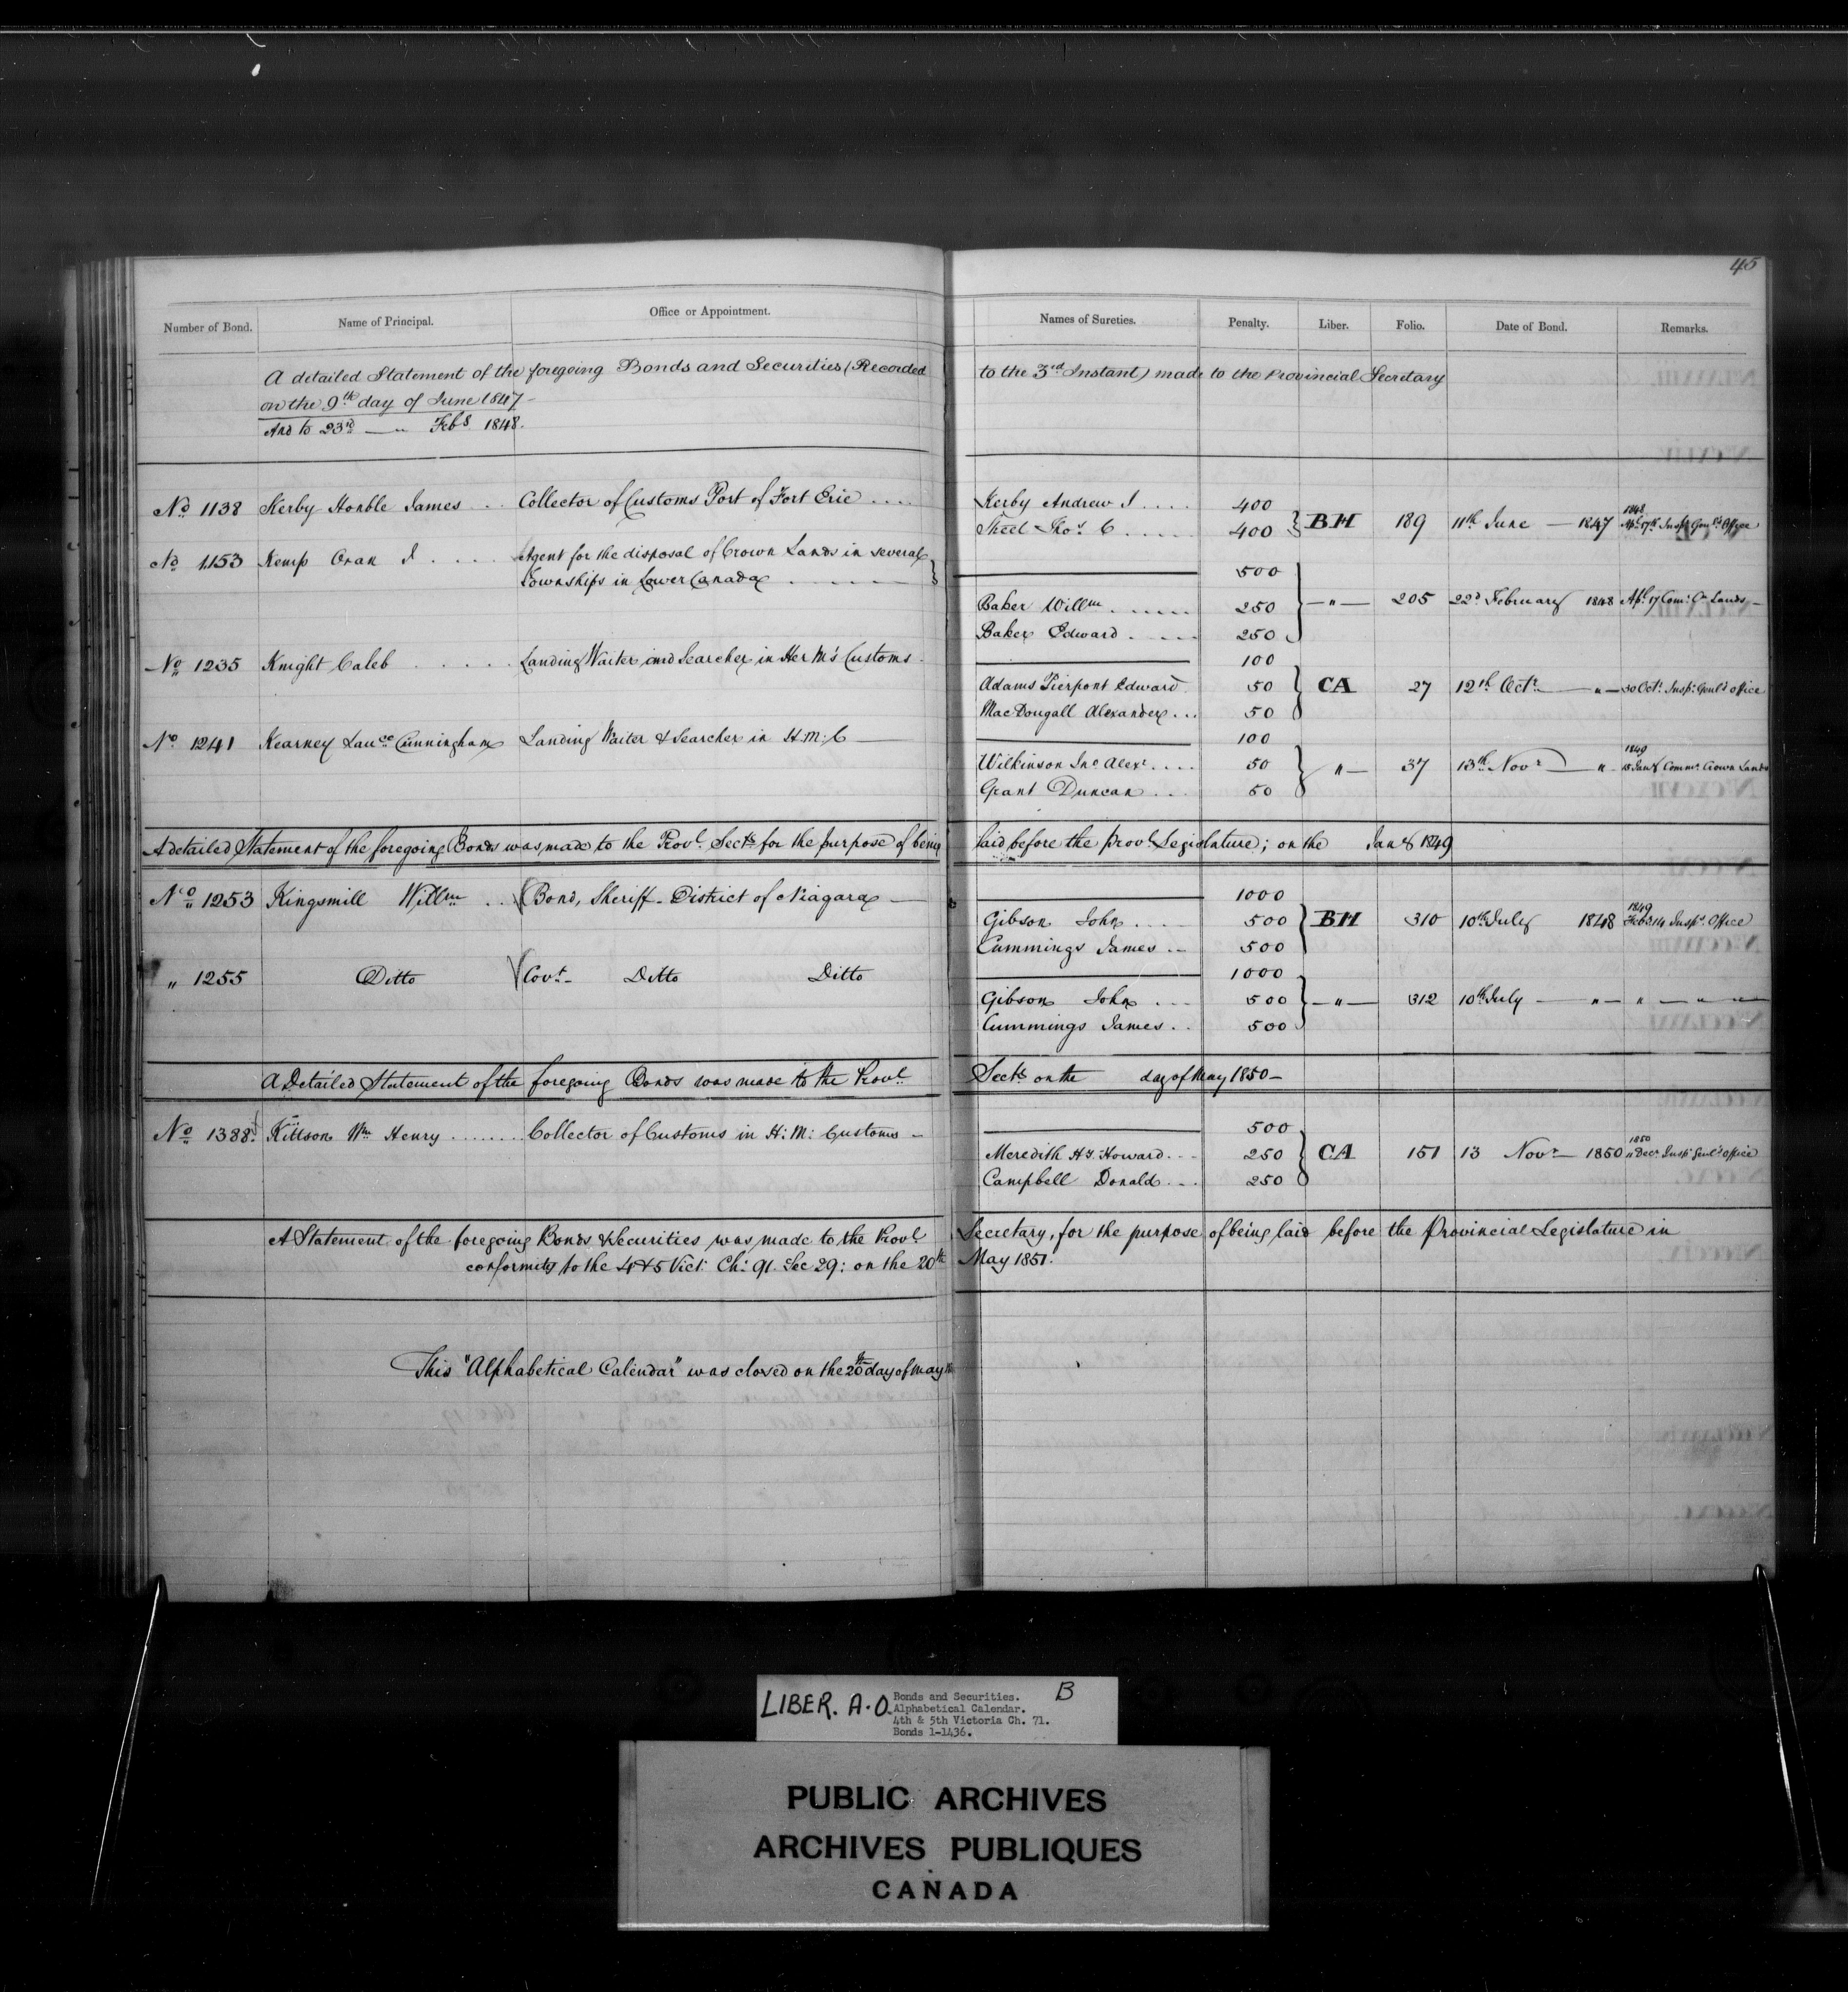 45
Number of Bond. Name of Principal. Office or Appointment. Names of Sureties. Penalty. Liber. Folio. Date of Bond. Remarks.
A detailed Statement of the foregoing Bonds and Securities (Recorded to the 3rd Instant) made to the Provincial Secretary
on the 9th day of June 1847 –
And to 23rd — " Feby 1848.
No 1138 Kerby Honble James . . Collector of Customs Port of Fort Erie . . . . Kerby Andrew J . . . . 400
Theel Thos. C . . . . . 400 } BH 189 11th June — 1847 1848 Apl 17th Inspr Genl's Office
No 1153 Kemp Oran J . . . . Agent for the disposal of Crown Lands in several
Townships in Lower Canada . — — — — } 500
Baker Willm . . . . . . 250 } — " — 205 22d February 1848 Apl. 17 Comr. Cn Lands –
Baker Edward . . . . 250
No 1235 Knight Caleb . . . . . Landing Waiter and Searcher in Her M's Customs. 100
Adams Pierpont Edward 50 } CA 27 12th Octr. — " — 30 Octr. Inspr. Genl's office
MacDougall Alexander . . . 50
No 1241 Kearney Lauce Cunningham Landing Waiter & Searcher in H.M: C — 100
Wilkinson Jno Alexr. . . . 50 } " — 37 13th Novr — " – 1849 15 Jany Commr. Crown Lands
Grant Duncan . . . 50
A detailed Statement of the foregoing Bonds was made to the Provl. Secty for the purpose of being laid before the provl. Legislature; on the Jany 1849
No 1253 Kingsmill Willm . . (Bond, Sheriff – District of Niagara — 1000
Gibson John . . . . 500 } BH 310 10th July 1848 1849 Feby 14 Inspr. Office
Cummings James . – 500
" 1255 Ditto (Covt – Ditto Ditto 1000
Gibson John . – – 500 } — " — 312 10th July — " — " — " —
Cummings James . . 500
A Detailed Statement of the foregoing Bonds was made to the Provl. Secty on the day of May 1850 –
No 1388. Kittson Wm Henry . . . . . . . Collector of Customs in H: M: Customs – 500
Meredith Hy. Howard . – – 250 } CA 151 13 Novr — 1850 1850 11 Decr Inspr Genl's office
Campbell Donald . – – 250
A Statement of the foregoing Bonds & Securities was made to the Provl Secretary, for the purpose of being laid before the Provincial Legislature in
conformity to the 4 & 5 Vict: Ch: 91. Sec 29: on the 20th May 1851.
This "Alphabetical Calendar" was closed on the 20th day of May
LIBER. A.O. Bonds and Securities. B
Alphabetical Calendar.
4th & 5th Victoria Ch. 71.
Bonds 1-1436.
PUBLIC ARCHIVES
ARCHIVES PUBLIQUES
CANADA